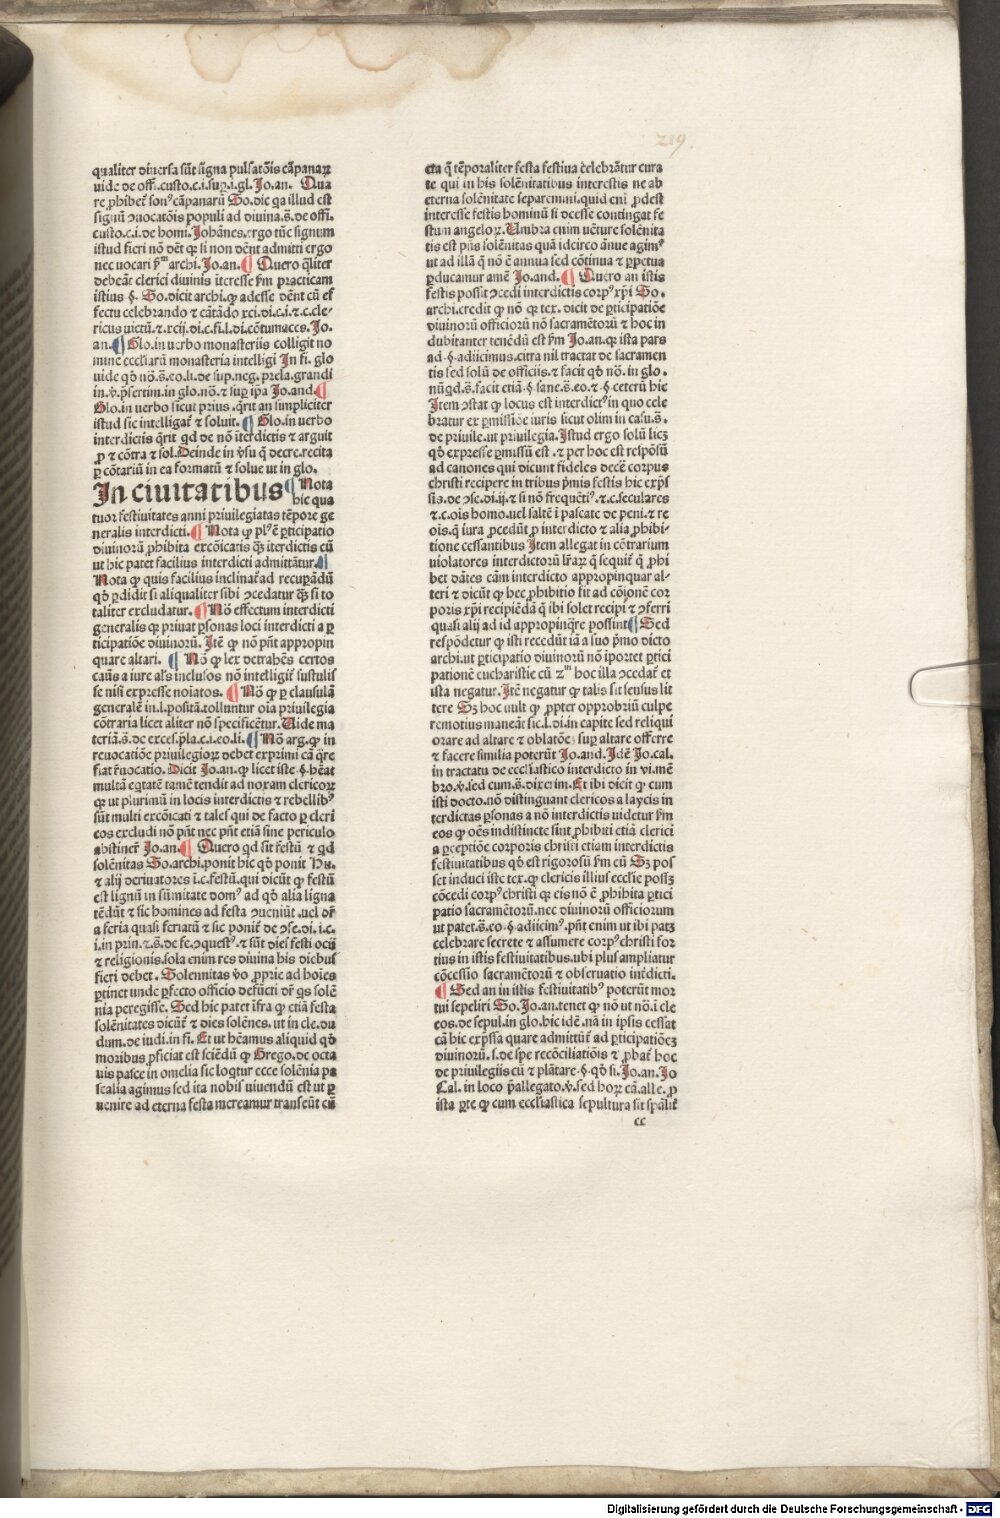 219.
qualiter diuersa sūt signa pulsatōis cāpanaꝝ
vide de offi.custo.c.i.suꝑ.i.gl.Jo.an. Qua
re ꝓhibetᷣ sonꝰ cāpanarū So.dic qa illud est
signū ꝯuocatōis populi ad diuina.s̄.de offi.
custo.c.i.de homi.Johānes.ergo tūc signum
istud fieri nō dēt qꝛ si non dēnt admitti ergo
nec uocari ꝑᵐ archi.Jo.an.¶ Quero q̄liter
debeāt clerici diuinis īteresse ẜm practicam
istius §. So.dicit archi.ꝙ adesse dēnt cū ef
fectu celebrando ⁊ cātādo xci.di.c.i.⁊.c.cle-
ricus uictū.⁊.xcij.di.c.fi.l.di.cōtumaces.Jo.
an.¶Glo.in uerbo monasteriis colligit no
mine eccliarū monasteria intelligi In fi. glo
uide qđ nō.s̄.eo.li.de sup.neg.prela.grandi
in.ꝟ.p̄sertim.in glo.nō.⁊ suꝑ ipa Jo.and.¶
Glo.in uerbo sicut prius.q̄rit an simpliciter
istud sic intelligat̄ ⁊ soluit.¶ Glo.in uerbo
interdictis q̄rit qd de nō īterdictis ⁊ arguit
ꝓ ⁊ cōtra ⁊ sol.Deinde in ꝟsu q̄ decre.recita
ꝑ cōtariū in ea formatū ⁊ solue ut in glo.
In ciuitatibus ¶Nota
hic qua
tuor festiuitates anni priuilegiatas tēpore ge
neralis interdicti.¶ Nota ꝙ plꝰ ē ꝑticipatio
diuinorū ꝓhibita excōicatis qꝫ īterdictis cū
ut hic patet facilius interdicti admittātur.¶
Nota ꝙ quis facilius inclinat̄ ad recuꝑādū
qđ ꝑdidit si aliqualiter sibi ꝯcedatur qꝫ si to
taliter excludatur. ¶Nō effectum interdicti
generalis qꝛ priuat ꝑsonas loci interdicti a ꝑ
ticipatiōe diuinorū. Itē ꝙ nō pn̄t appropin
quare altari. ¶ Nō ꝙ lex detrahēs certos
caūs a iure al's inclusos nō intelligit̄ sustulis
se nisi expresse noīatos. ¶Nō ꝙ ꝑ clausulā
generalē in.l.positā.tolluntur oīa priuilegia
cōtraria licet aliter nō specificētur.Uide ma
teriā.s̄.de exces.p̄la.c.i.eo.li.¶Nō arg.ꝙ in
reuocatiōe priuilegioꝝ debet exprimi cā q̄re
fiat r̄uocatio.Dicit Jo.an.ꝙ licet iste §.hēat
multā eqtatē tamē tendit ad noxam clericoꝝ
qꝛ ut plurimū in locis interdictis ⁊ rebellibꝰ
sūt multi excōicati ⁊ tales qui de facto ꝑ cleri
cos excludi nō pn̄t nec pn̄t etiā sine periculo
abstinerˀ Jo.an.¶ Quero qd sit festū ⁊ qd
solēnitas So.archi.ponit hic qđ ponit Hu.
⁊ alij deriuatores ī.c.festū.qui dicūt ꝙ festū
est lignū in sūmitate domꝰ ad qđ alia ligna
tēdūt ⁊ sic homines ad festa ꝯueniūt.uel dr̄
a feria quasi feriatū ⁊ sic ponit̄ de ꝯse.di.i.c.
i.in prin.⁊.s̄.de fe.ꝯquestꝰ.⁊ sūt diei festi ocij
⁊ religionis.sola enim res diuina his diebus
fieri debet. Solennitas ꝟo ꝓprie ad hoīes
ꝑtinet unde ꝑfecto officio defūcti dr̄ qs solē
nia peregisse. Sed hic patet īfra ꝙ etiā festa
solēnitates dicūt̄ ⁊ dies solēnes.ut in cle.du
dum.de iudi.in fi. Et ut hēamus aliquid qđ
moribus ꝓficiat est sciēdū ꝙ Grego.de octa
uis pasce in omelia sic loqtur ecce solēnia pa
scalia agimus sed ita nobis uiuendū est ut ꝑ
uenire ad eterna festa mereamur transeūt cū
cta q̄ tēporaliter festa festiua celebrātur cura
te qui in his solēnitatibus interestis ne ab
eterna solēnitate separemini.quid eni ꝓdest
interesse festis hominū si deesse contingat fe
stum angeloꝝ.Umbra enim uēture solēnita
tis est pn̄s solēnitas quā idcirco ānue agimꝰ
ut ad illā q̄ nō ē annua sed cōtinua ⁊ ꝑpetua
ꝑducamur amē Jo.and.¶ Quero an istis
festis possit ꝯcedi interdictis corpꝰ xp̄i So.
archi.credit ꝙ nō qꝛ tex. dicit de ꝑticipatiōe
diuinorū officiorū nō sacramētorū ⁊ hoc in
dubitanter tenēdū est ẜm Jo.an.qꝛ ista pars
ad §.adiicimus.citra nil tractat de sacramen
tis sed solū de officiis.⁊ facit qđ nō. in glo.
nūqd.s̄.facit etiā §.sane.s̄.eo.⁊.§ ceterū hic
Item ꝯstat ꝙ locus est interdictꝰ in quo cele
bratur ex ꝑmissiōe iuris sicut olim in casu.s̄.
de priuile.ut priuilegia.Istud ergo solū licꝫ
qđ expresse ꝑmissū est .⁊ per hoc est respōsū
ad canones qui dicunt fideles decē corpus
christi recipere in tribus p̄mis festis hic exp̄s
sis.de ꝯse.di.ij.⁊ si nō frequētiꝰ.⁊.c.seculares
⁊.c.ois homo.uel saltē ī pascate de peni.⁊ re
ois.q̄ iura ꝓcedūt ꝓ interdicto ⁊ alia ꝓhibi-
tione cessantibus Item allegat in cōtrarium
uiolatores interdictorū lr̄aꝝ q̄ sequit̄ q̄ ꝓhi
bet dātes cām interdicto appropinquar al-
teri ⁊ dicūt ꝙ hec ꝓhibitio fit ad cōiōnē cor
poris xp̄i recipiēdā q̄ ibi solet recipi ⁊ ꝯferri
quasi alij ad id appropinq̄re possint¶Sed
respōdetur ꝙ isti recedūt iā a suo p̄mo dicto
archi.ut ꝑticipatio diuinorū nō īportet ꝑtici
pationē eucharistie cū zᵐ hoc illa ꝯcedat̄ et
ista negatur.Itē negatur ꝙ talis sit sensus lit
tere Sꝫ hoc uult ꝙ ꝓpter opprobriū culpe
remotius maneāt sic.l.di.in capite sed reliqui
orare ad altare ⁊ oblatōe suꝑ altare offerre
⁊ facere similia poterūt Jo.and.Idē Jo.cal.
in tractatu de eccliastico interdicto in vi.mē
bro.ꝟ.sed cum.s̄.dixerim.Et ibi dicit ꝙ cum
isti docto.nō distinguant clericos a laycis in
terdictas ꝑsonas a nō interdictis uidetur ẜm
eos ꝙ oēs indistincte sint ꝓhibiti etiā clerici
a ꝑceptiōe corporis christi etiam interdictis
festiuitatibus qđ est rigorosū ẜm cū Sꝫ pos
set induci iste tex.ꝙ clericis illius ecclie possꝫ
cōcedi corpꝰ christi qꝛ eis nō ē ꝓhibita ꝑtici
patio sacramētorū.nec diuinorū officiorum
ut patet.s̄.eo.§.adiicimꝰ.pn̄t enim ut ibi patꝫ
celebrare secrete ⁊ assumere corpꝰ christi for
tius in istis festiuitatibus.ubi plus ampliatur
cōcessio sacramētorū ⁊ obseruatio intēdicti.
¶ Sed an in istis festiuitatibꝰ poterūt mor
tui sepeliri So.Jo.an.tenet ꝙ nō ut nō.ī cle
eos.de sepul.in glo.hic idē.nā in ipsis cessat
cā hic exp̄ssa quare admittūt̄ ad ꝑticipatiōeꝫ
diuinorū.s.de spe recōciliatiōis ⁊ ꝓbat̄ hoc
de priuilegiis cū ⁊ plātare.§.qđ si.Jo.an.Jo
Cal.in loco p̄allegato.ꝟ.sed hoꝝ cā.alle.ꝓ
ista ꝑte ꝙ cum eccliastica sepultura sit sp̄alit̄
cc
Digitalisierung gefördert durch die Deutsche Forschungsgemeinschaft - DFG